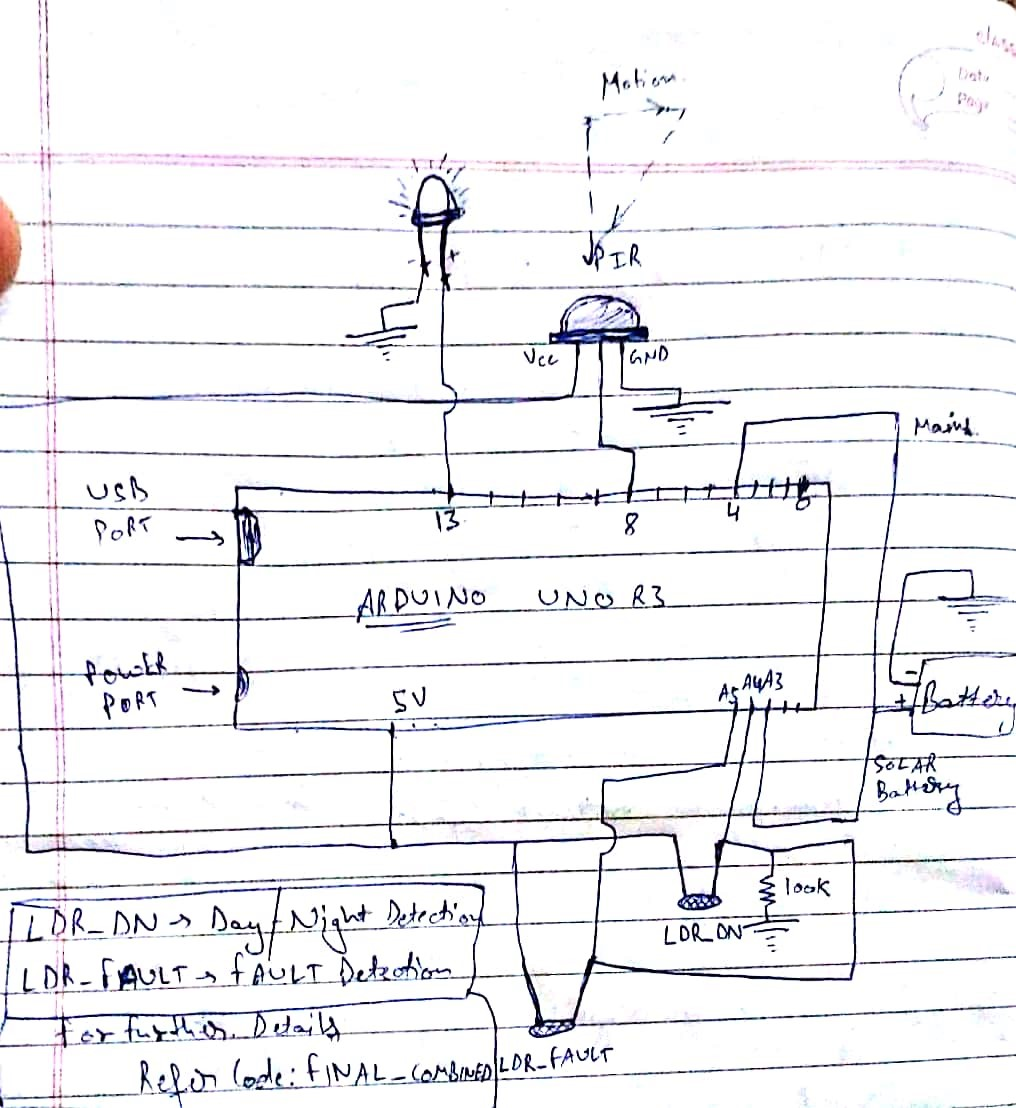 class
Date
Page
Motion
- +
PIR
Vcc
GND
Mains.
USB
PORT
13
8
4
0
ARDUINO UNO R3
POWER
PORT
5V
A5 A4 A3
-
+ Battery
SOLAR
Battery
100K
LDR_DN
LDR_DN → Day/Night Detection
LDR_FAULT → FAULT Detection
For further Details
Refer Code: FINAL_COMBINED
LDR_FAULT